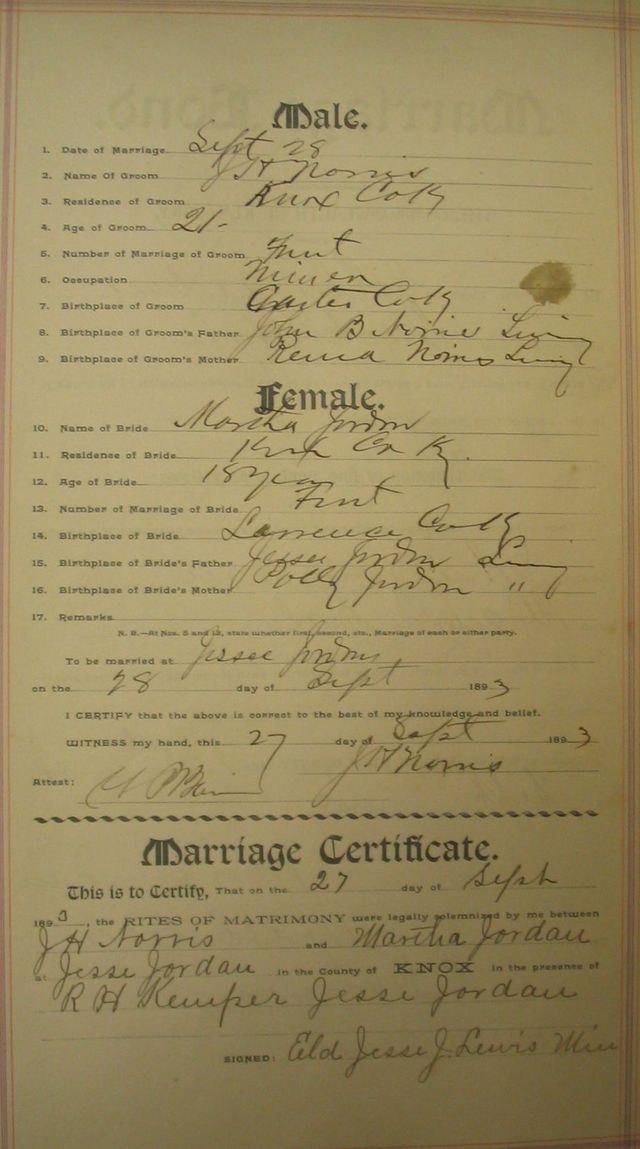 Male.
1. Date of Marriage Sept 28
2. Name Of Groom J H Norris
3. Residence of Groom Knox Co Ky
4. Age of Groom 21-
5. Number of Marriage of Groom First
6. Occupation Miner
7. Birthplace of Groom Carter Co Ky
8. Birthplace of Groom's Father John B Norris Living
9. Birthplace of Groom's Mother Norris Living
Female.
10. Name of Bride Martha Jordon
11. Residence of Bride Knox Co Ky.
12. Age of Bride 18 years
13. Number of Marriage of Bride First
14. Birthplace of Bride Lawrence Co Ky
15. Birthplace of Bride's Father Jessee Jordon Living
16. Birthplace of Bride's Mother Polly Jordon "
17. Remarks
N. B.—At Nos. 5 and 13, state whether first, second, etc., Marriage of each or either party.
To be married at Jessee Jordons
on the 28 day of Sept 1893
I CERTIFY that the above is correct to the best of my knowledge and belief.
WITNESS my hand, this 27 day of Sept 1893
J H Norris
Attest:
Marriage Certificate.
This is to Certify, That on the 27 day of Sept
1893, the RITES OF MATRIMONY were legally solemnized by me between
J H Norris and Martha Jordan
at Jesse Jordan in the County of KNOX in the presence of
R H Kemper Jesse Jordan
SIGNED: Eld Jesse J. Lewis Min